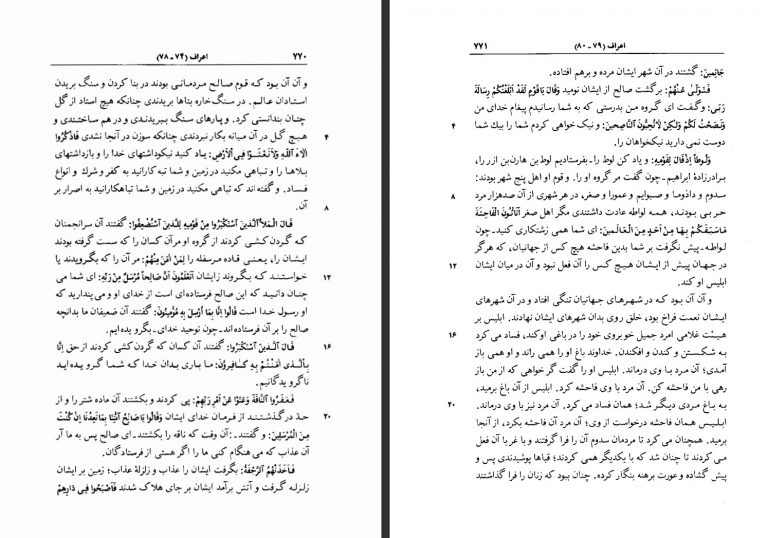 ۷۷۰
اعراف (۷۴ ـ ۷۸)
و آن آن بود که قوم صالح مردمانی بودند در بنا کردن و سنگ بریدن
استادان عالم. در سنگ خاره بناها بریدندی چنانکه هیچ استاد از گل
چنان بندانستی کرد. و پارهای سنگ ببریدندی و در هم ساختندی و
هیچ گل در آن میانه بکار نبردندی چنانکه سوزن در آنجا نشدی فَاذْكُرُوا ۴
الَاءَ اللّهِ وَلَاتَعْثَوْا فِی الْاَرْضِ: یاد کنید نیکوداشتهای خدا را و بازداشتهای
بلاها را و تباهی مکنید در زمین و شما تبه کارانید به کفر و شرك و انواع
فساد. و گفته‌اند که تباهی مکنید در زمین و شما تباهکارانید به اصرار بر
آن. ۸
قَالَ الْمَلَأُ الَّذِينَ اسْتَكْبَرُوا مِنْ قَوْمِهِ لِلَّذِينَ اسْتُضْعِفُوا: گفتند آن سرانجمنان
که گردن کشی کردند از گروه او مر آن کسان را که سست گرفته بودند
ایشان را، یعنی قاده مر سفله را لِمَنْ امَنَ مِنْهُمْ: مر آن را که بگرویدند یا
خواستند که بگروند زایشان اَتَعْلَمُونَ اَنَّ صَالِحاً مُرْسَلٌ مِنْ رَبِّهِ: ای شما می ۱۲
چنان دانید که این صالح فرستاده‌ای است از خدای او و می پندارید که
او رسول خدا است قَالُوا اِنَّا بِمَا اُرْسِلَ بِهِ مُؤْمِنُونَ: گفتند آن ضعیفان ما بدانچه
صالح را بر آن فرستاده‌اند ـ چون توحید خدای ـ بگرو یده‌ایم.
قَالَ الَّذِينَ اسْتَكْبَرُوا: گفتند آن کسان که گردن کشی کردند از حق اِنَّا ۱۶
بِالَّذِی امَنْتُمْ بِهِ كَافِرُونَ: ما باری بدان خدا که شما گرو یده‌اید
ناگرو یدگانیم.
فَعَقَرُوا النَّاقَةَ وَعَتَوْا عَنْ اَمْرِ رَبِّهِمْ: پی کردند و بکشتند آن ماده شتر را و از
حد درگذشتند از فرمان خدای ایشان وَقَالُوا یَا صَالِحُ ائْتِنَا بِمَا تَعِدُنَا اِنْ كُنْتَ ۲۰
مِنَ الْمُرْسَلِينَ: و گفتند ـ آن وقت که ناقه را بکشتند ـ ای صالح پس به ما آر
آن عذاب که می هنگام کنی ما را اگر هستی از فرستادگان.
فَاَخَذَتْهُمُ الرَّجْفَةُ: بگرفت ایشان را عذاب و زلزلهٔ عذاب؛ زمین بر ایشان
زلزله گرفت و آتش برآمد ایشان بر جای هلاک شدند فَاَصْبَحُوا فِی دَارِهِمْ
۷۷۱
اعراف (۷۹ ـ ۸۰)
جَاثِمِينَ: گشتند در آن شهر ایشان مرده و برهم افتاده.
فَتَوَلَّی عَنْهُمْ: برگشت صالح از ایشان نومید وَقَالَ یَاقَوْمِ لَقَدْ اَبْلَغْتُكُمْ رِسَالَةَ
رَبِّی: وگفت ای گروه من بدرستی که به شما رسانیدم پیغام خدای من
وَنَصَحْتُ لَكُمْ وَلٰكِنْ لَاتُحِبُّونَ النَّاصِحِينَ: و نیک خواهی کردم شما را بیك شما ۴
دوست نمی دارید نیکخواهان را.
وَلُوطاً اِذْقَالَ لِقَوْمِهِ: و یاد کن لوط را ـ بفرستادیم لوط بن هارن بن آزر را،
برادرزادهٔ ابراهیم ـ چون گفت مر گروه او را. و قوم او اهل پنج شهر بودند:
سدوم و داذوما و صبوایم و عمورا و صغر، در هر شهری از آن صدهزار مرد ۸
حربی بودند، همه لواطه عادت داشتندی مگر اهل صغر اَتَاْتُونَ الْفَاحِشَةَ
مَاسَبَقَكُمْ بِهَا مِنْ اَحَدٍ مِنَ الْعَالَمِينَ: ای شما همی زشتکاری کنید ـ چون
لواطه ـ پیش نگرفت بر شما بدین فاحشه هیچ کس از جهانیان، که هرگز
در جهان پیش از ایشان هیچ کس را آن فعل نبود و آن در میان ایشان ۱۲
ابلیس او کند.
و آن آن بود که در شهرهای جهانیان تنگی افتاد و در آن شهرهای
ایشان نعمت فراخ بود، خلق روی بدان شهرهای ایشان نهادند. ابلیس بر
هیئت غلامی امرد جمیل خوبروی خود را در باغی اوکند، فساد می کرد ۱۶
به شکستن و کندن و افکندن. خداوند باغ او را همی راند و او همی باز
می آمد؛ آن مرد با وی درماند. ابلیس او را گفت گر خواهی که از من باز
رهی با من فاحشه کن. آن مرد با وی فاحشه کرد. ابلیس از آن باغ برمید،
به باغ مردی دیگر شد؛ همان فساد می کرد. آن مرد نیز با وی درماند. ۲۰
ابلیس همان فاحشه درخواست از وی؛ آن مرد آن فاحشه بکرد. از آنجا
برمید. همچنان می کرد تا مردمان سدوم آن را فرا گرفتند و با غر با آن فعل
می کردند تا چنان شد که با یکدیگر همی کردند؛ قباها پوشیدندی پس و
پیش گشاده و عورت برهنه بنگار کرده. چنان بود که زنان را فرا گذاشتند